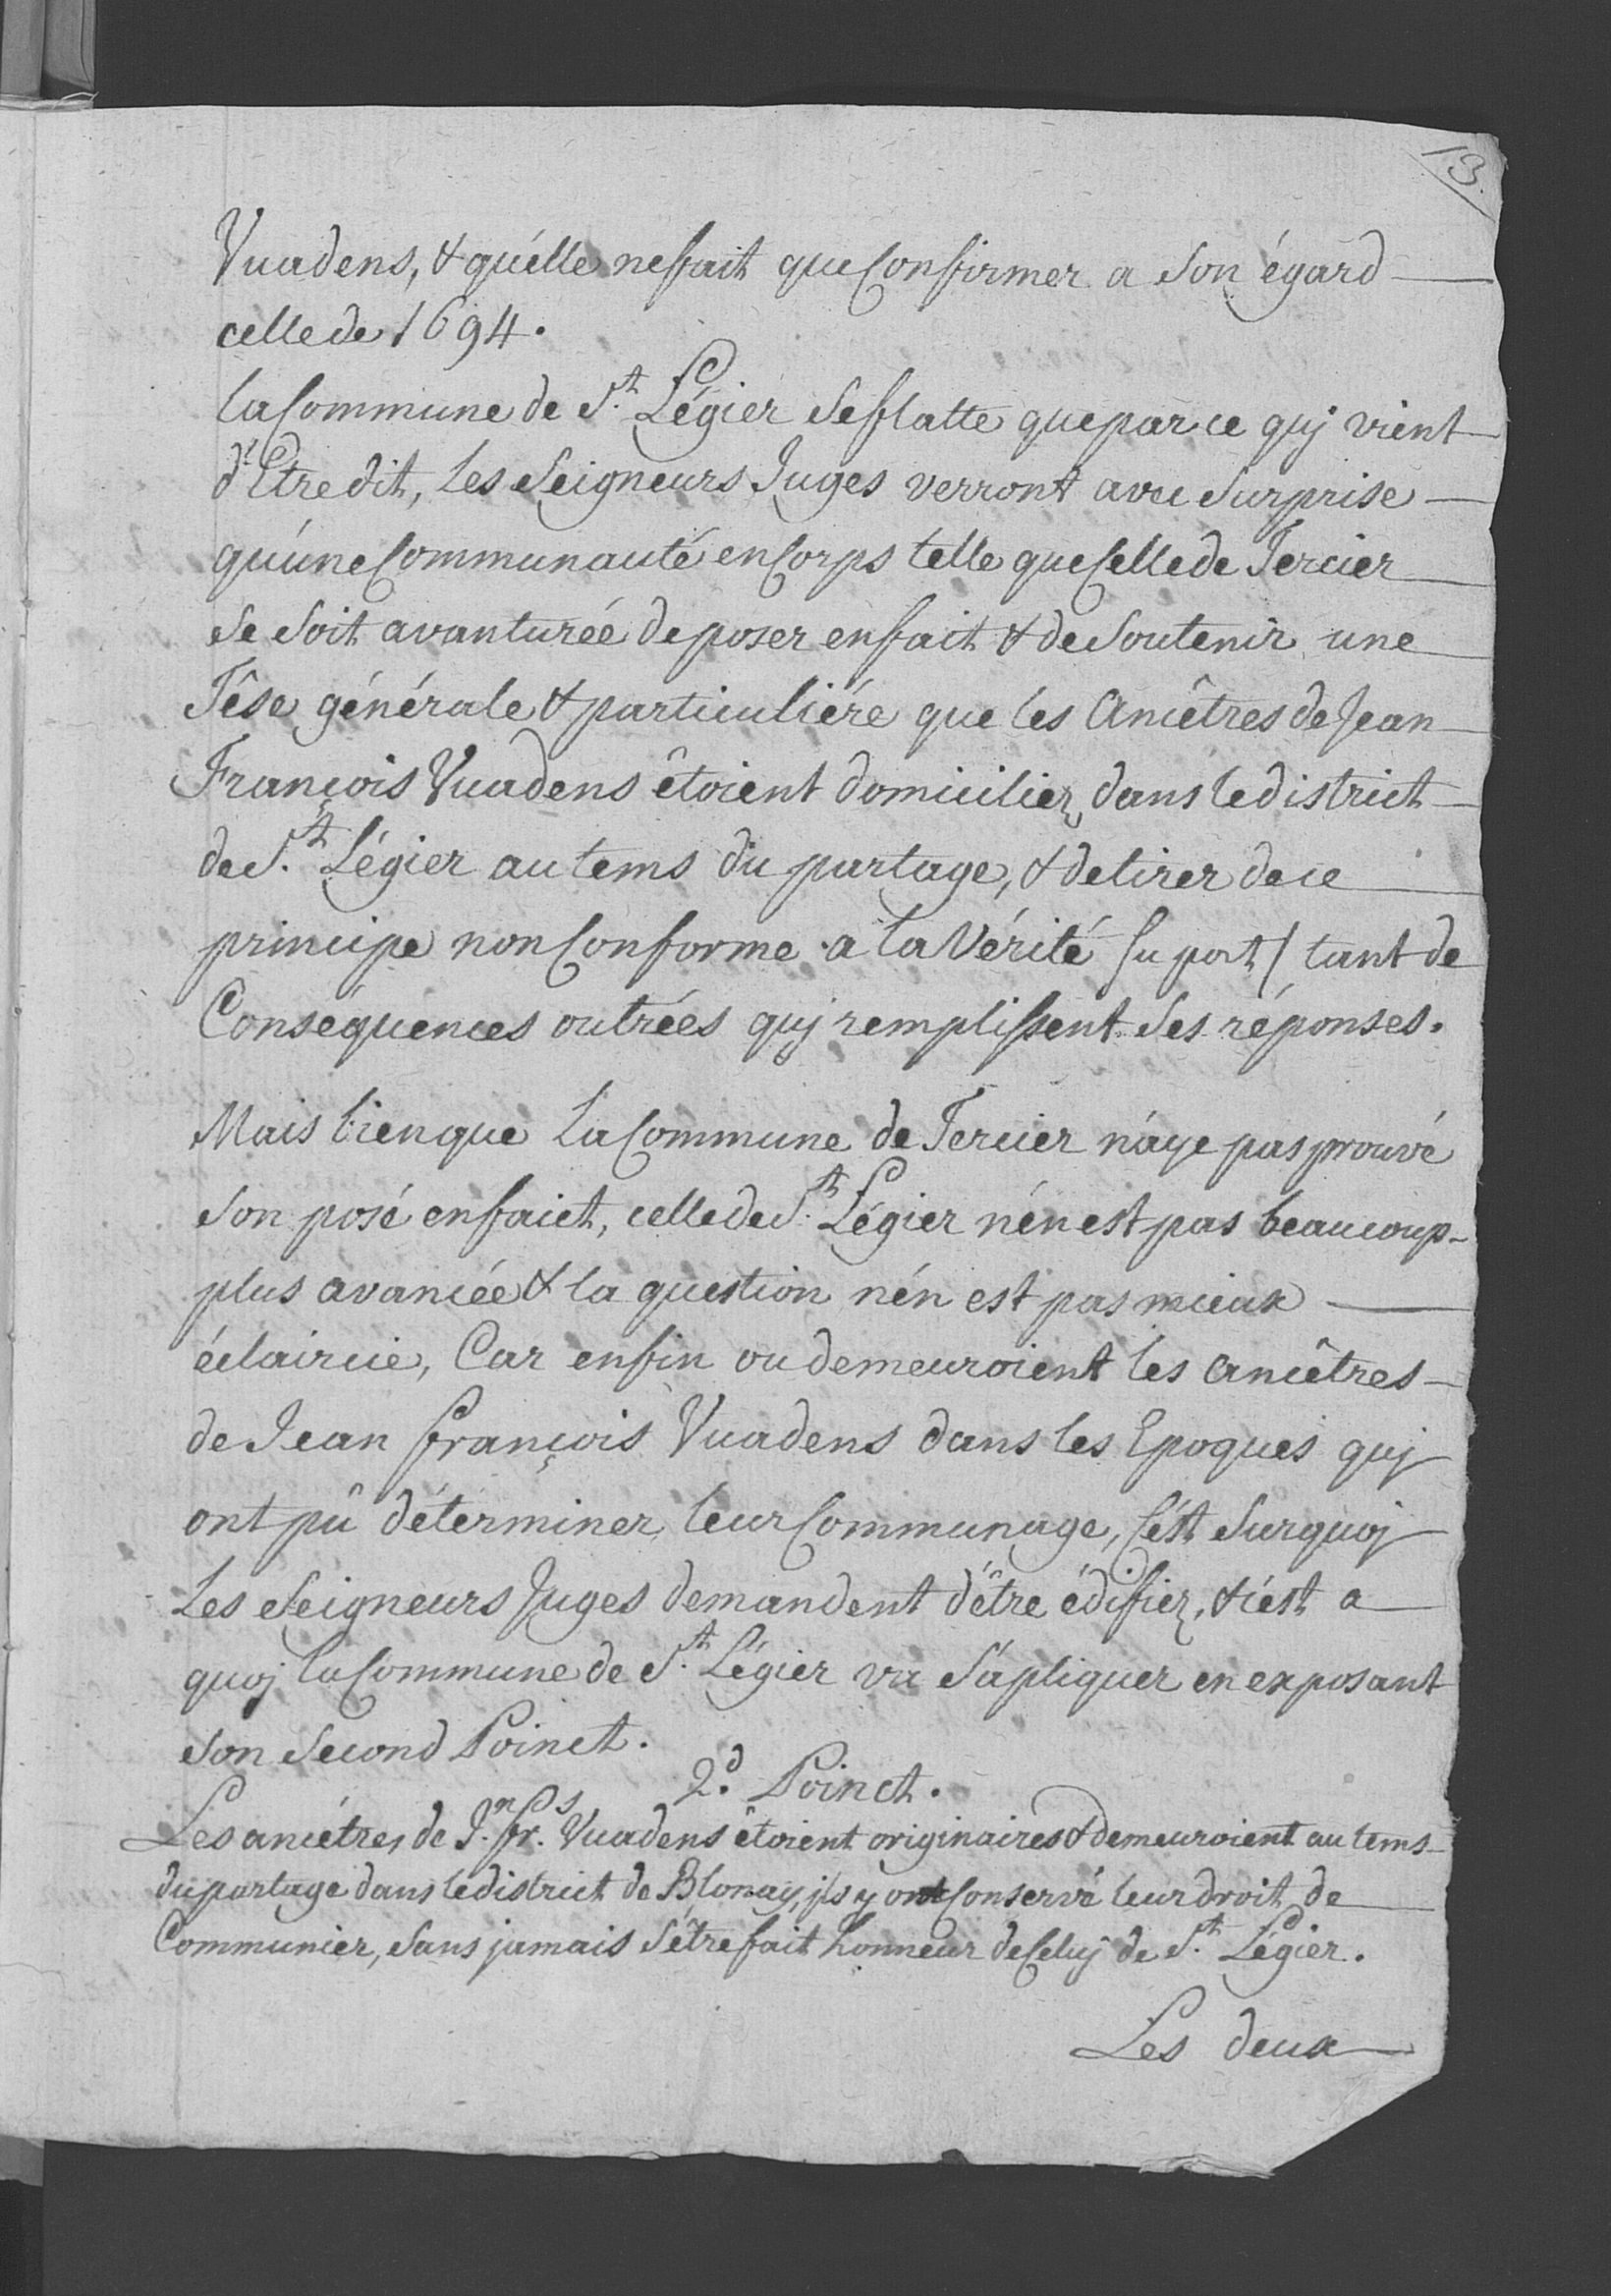 13.
Vuadens, & qu'elle ne fait que Confirmer a Son égard
celle de 1694.
la Commune de S.t Légier Se flatte que par ce quj vient
d'Etre dit, les Seigneurs Juges verront avec Surprise
qu'une Communauté en Corps telle que Celle de Tercier
Se Soit avanturée de poser en fait & de Soutenir une
Têse générale & particuliére que les Ancêtres de Jean
François Vuadens êtoient domiciliez dans le district
de S.t Légier au tems du partage, & de tirer de ce
principe non Conforme a la Vérité / tant de
Conséquences outrées quj remplissent Ses réponses.
Mais bien que la Commune de Tercier n'aye pas prouvé
Son posé en faict, celle de S.t Légier n'én est pas beaucoup
plus avancée & la question n'én est pas mieux
éclaircie, Car enfin ou demeuroient les Ancêtres
de Jean françois Vuadens dans les Epoques quj
ont pû déterminer leur Communage, C'ést Sur quoj
les Seigneurs Juges demandent d'être édifiez, & c'est a
quoj la Commune de S.t Légier va S'apliquer en exposant
Son Second Poinct.
2.d Poinct.
Les ancétres de J.n fr.s Vuadens êtoient originaires & demeuroient au tems
du partage dans le district de Blonay, jls y ont Conservé leur droit de
Communier, Sans jamais S'être fait honneur de Celuj de S.t Légier.
Les deux